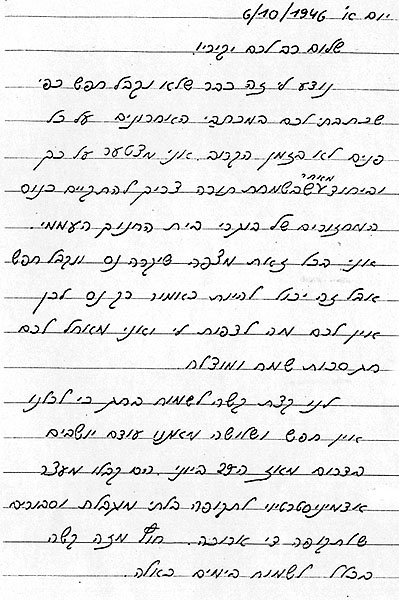 יום א' 6/10/1946
שלום רב לכם יקירי.
נודע לי זה כבר שלא נקבל חפש כפי
שכתבתי לכם במכתבי האחרונים על כל
פנים לא בזמן הקרוב. אני מצטער על כך
וביחוד מאחר שבשמחת תורה צריך להתקיים כנוס
המחזורים של בוגרי בית החנוך העממי.
אני בכל זאת מצפה שיקרה נס ונקבל חפש
אבל זה יכול להיות כאמור רק נס לכן
אין לכם מה לצפות לי ואני מאחל לכם
חג סכות שמח ומוצלח.
לנו קצת קשה לשמוח בחג כי לכלנו
אין חפש ושלישה מאתנו עודם יושבים
בדרום מאז ה29 ביוני. הם קבלו מעצר
אדמיניסטרטיבי לתקופה בלתי מוגבלת וסבורים
שלתקופה די ארוכה. חוץ מזה קשה
בכלל לשמוח בימים כאלה.